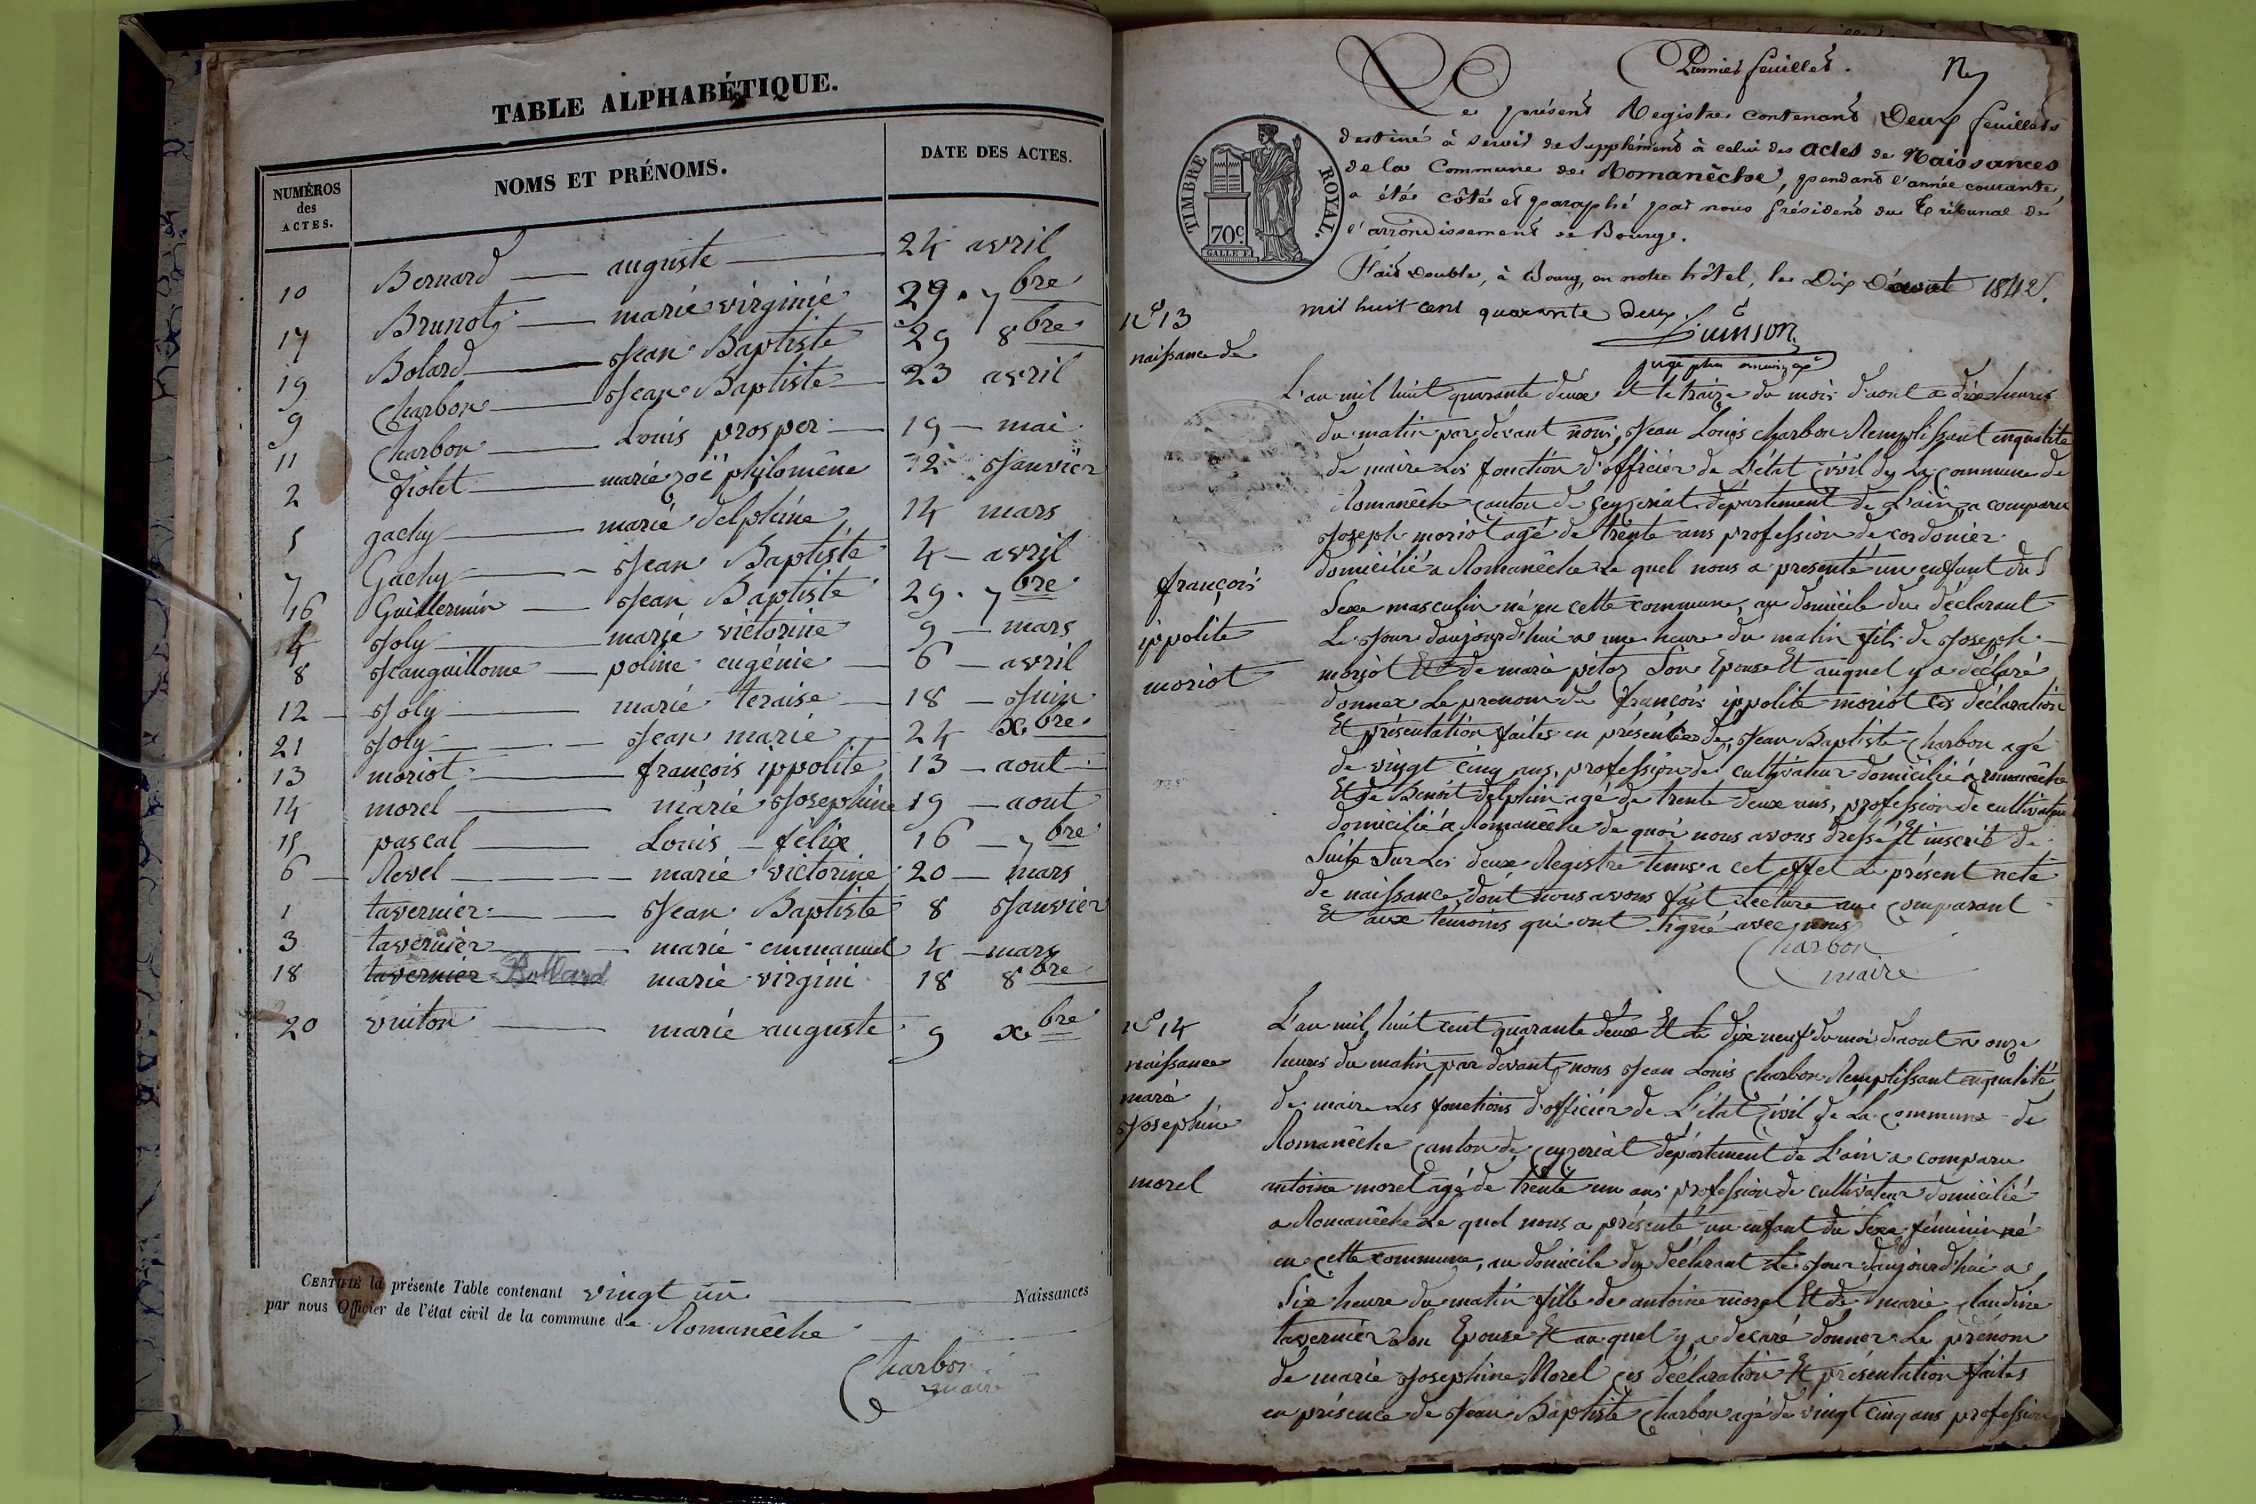 TABLE ALPHABÉTIQUE.
NUMÉROS des ACTES. NOMS ET PRÉNOMS. DATE DES ACTES.
10 Bernard auguste 24 avril
17 Brunot marie virginie 29 . 7bre
19 Bolard Jean Baptiste 29 8bre
9 Charbon Jean Baptiste 23 avril
11 Charbon Louis prosper 19 mai
2 fiolet marie zoë philomène 12 Janvier
5 gachy marie delphine 14 mars
7 Gachy Jean Baptiste 4 avril
16 Guillermin Jean Baptiste 29 . 7bre
4 Joly marie victorine 9 mars
8 Jeanguillome poline eugénie 6 avril
12 Joly marie teraise 18 Juin
21 Joly Jean marie 24 xbre
13 moriot françois ippolite 13 aout
14 morel marie Josephine 19 aout
15 pascal Louis félix 16 7bre
6 Revel marie victorine 20 mars
1 tavernier Jean Baptiste 8 Janvier
3 tavernier marie emmanuel 4 mars
18 tavernier Bollard marie virgini 18 8bre
20 vuiton marie auguste 9 xbre
CERTIFIÉ la présente Table contenant vingt un Naissances
par nous Officier de l'état civil de la commune de Romanêche
Charbon
maire
Premier feuillet.
Le présent Registre contenant Deux feuillets
destiné à servir de supplément à celui des actes de Naissances
de la Commune de Romanêche, pendant l'année courante,
a été côté et paraphé par nous président du Tribunal de
l'arrondissement de Bourg.
Fait double, à Bourg, en notre hôtel, le Dix aout 1842.
mil huit cent quarante deux.
TIMBRE ROYAL.
70c
n° 13
naissance de
françois
ippolite
moriot
L'an mil huit quarante deux et le traize du mois d'aout a dix heures
du matin par devant nous, Jean Louis Charbon Remplissant enqualité
de maire Les fonction d'officier de L'état civil de La commune de
Romanêche canton de ceyzeriat département de L'ain a comparu
Joseph moriot agé de trente ans profession de cordonier
domicilié a Romanêche Le quel nous a presenté un enfant du
Sexe masculin né en cette commune, au domicile du déclarant
Le Jour daujourd'hui a une heure du matin fils de Joseph
moriot Et de marie pitoz Son Epouse Et auquel y a déclaré
donner Le prenom de françois ippolite moriot ces déclaration
Et présentation faites en présence de Jean Baptiste Charbon agé
de vingt cinq ans, profession de cultivateur domicilié a romanêche
Et de Benoit delphin agé de trente deux ans, profession de cultivateur
domicilié a Romanêche de quoi nous avons dressé Et inscrit de
Suite Sur Les deux Registre tenus a cet effet Le présent acte
de naissance, dont nous avons fait Lecture au comparant
Et aux temoins qui ont signé avec nous
Charbon
maire
n° 14
naissance
marie
Josephine
morel
L'an mil huit cent quarante deux Et Le dix neuf du moi d'aout a onze
heures du matin par devant nous Jean Louis Charbon Remplissant enqualité
de maire Les fonctions d'officier de L'état civil de La commune de
Romanêche canton de ceyzeriat département de L'ain a comparu
antoine morel agé de trente un ans profession de cultivateur domicilié
a Romanêche Le quel nous a présenté un enfant du Sexe féminin né
en cette commune, au domicile du déclarant Le Jour daujourd'hui a
Six heure du matin fille de antoine morel Et de marie claudine
tavernier Son Epouse Et auquel y a decaré donner Le prénom
de marie Josephine Morel ces déclaration Et présentation faites
en présence de Jean Baptiste Charbon agé de vingt cinq ans profession